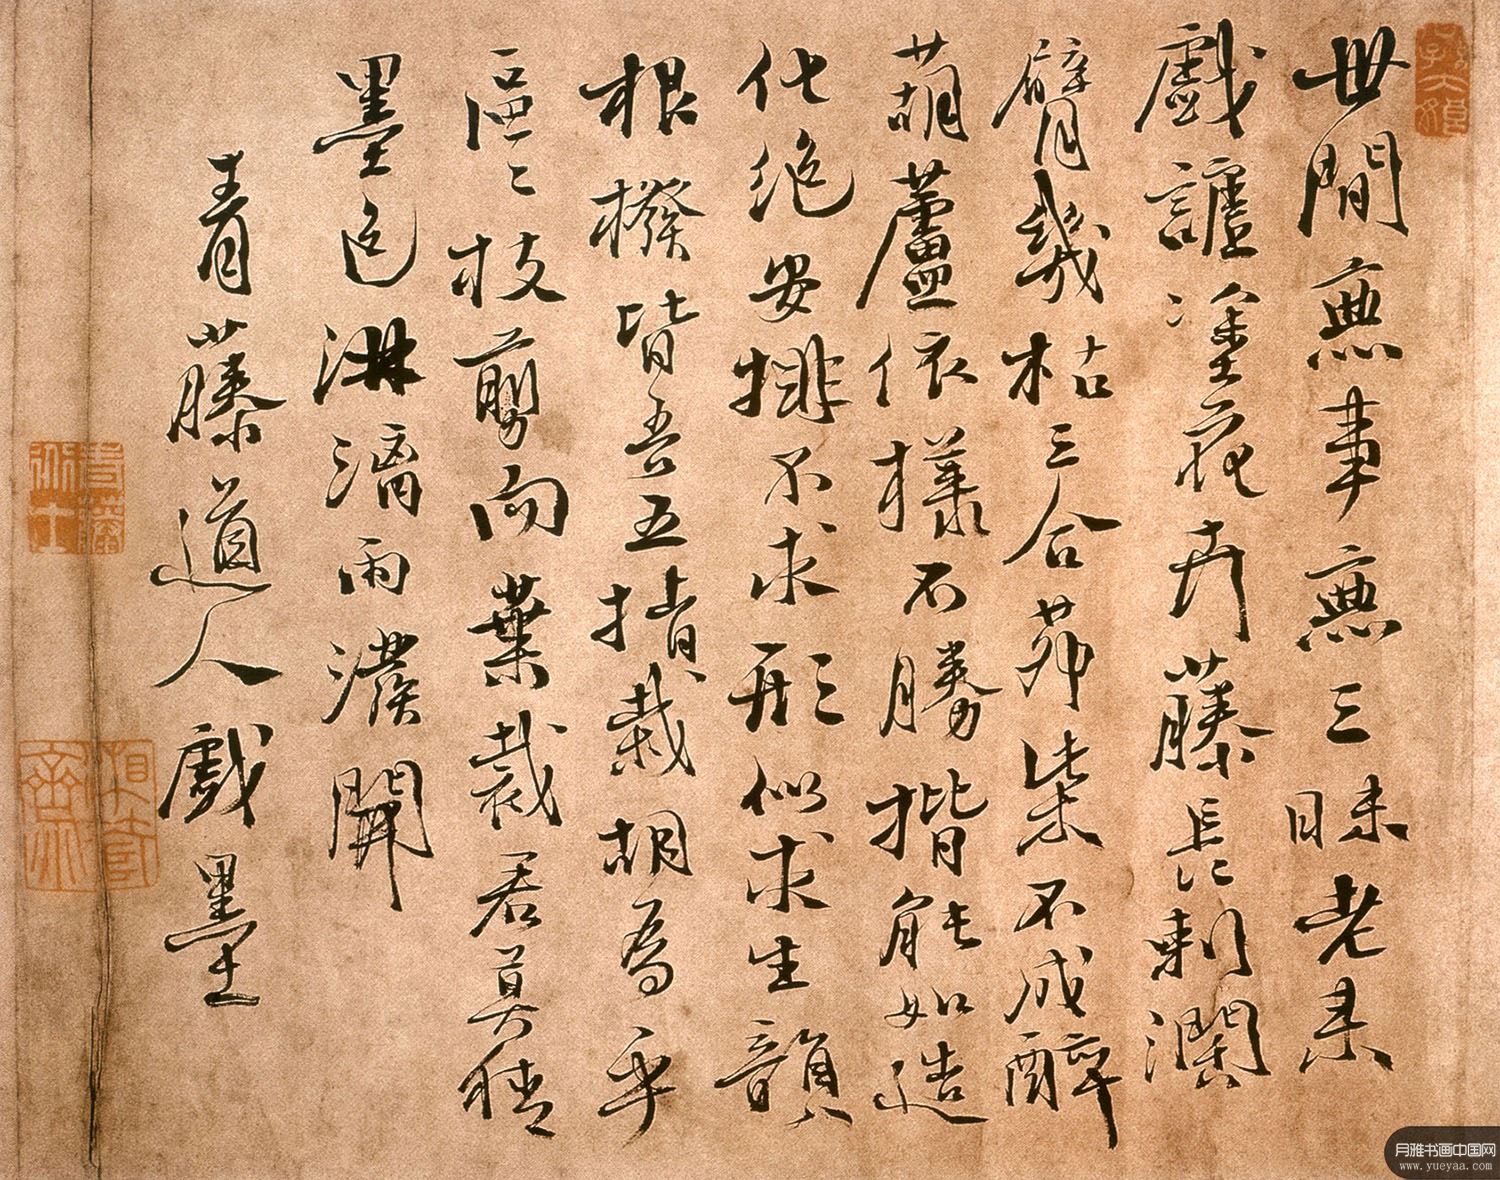 世間無事無三昧老來
戲謔塗花卉藤長刺闊
臂幾枯三合茅柴不成醉
葫蘆依樣不勝揩能如造
化絕安排不求形似求生韻
根撥皆吾五指栽胡為乎
區〻枝剪而葉裁君莫猜
墨色淋漓雨潑開
青藤道人戲墨
月雅书画中国网
www.yueyaa.com